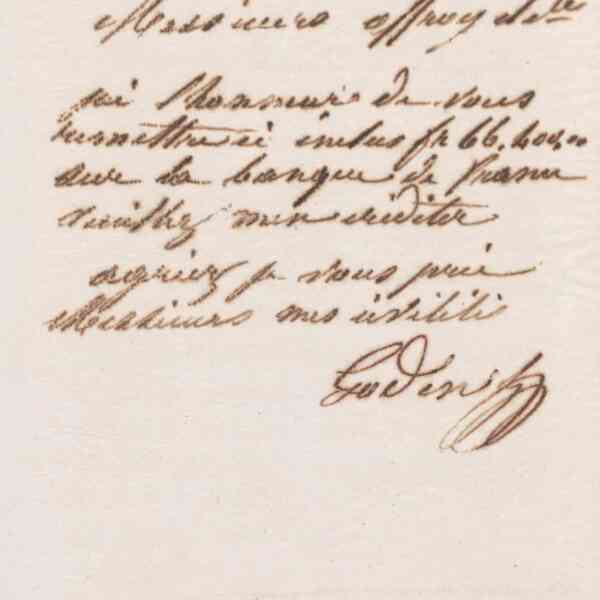 Messieurs offroy & Cie
j'ai l'honneur de vous
remettre ci inclus fr 66,400,00
sur la banque de france
veuillez men créditer
agriez je vous prie
Messieurs mes civilités
Godin